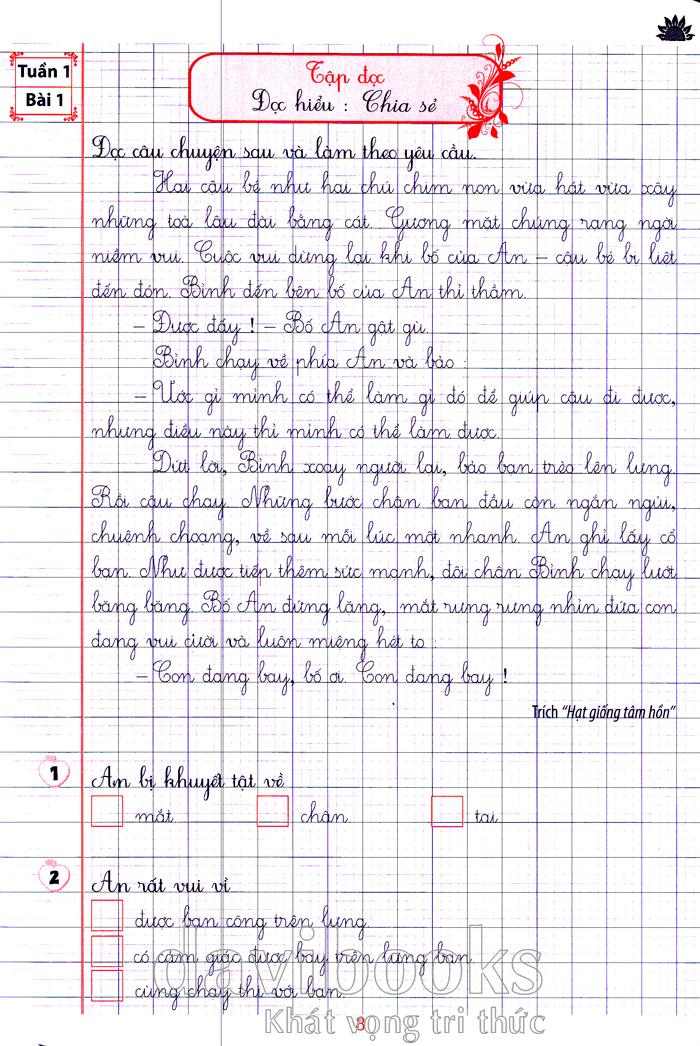 Tuần 1
Bài 1
Tập đọc
Đọc hiểu : Chia sẻ
Đọc câu chuyện sau và làm theo yêu cầu.
Hai cậu bé như hai chú chim non vừa hát vừa xây
những toà lâu đài bằng cát. Gương mặt chúng rạng ngời
niềm vui. Cuộc vui dừng lại khi bố của An – cậu bé bị liệt
đến đón. Bình đến bên bố của An thì thầm.
– Được đấy ! – Bố An gật gù.
Bình chạy về phía An và bảo :
– Ước gì mình có thể làm gì đó để giúp cậu đi được,
nhưng điều này thì mình có thể làm được.
Dứt lời, Bình xoay người lại, bảo bạn trèo lên lưng.
Rồi cậu chạy. Những bước chân ban đầu còn ngắn ngủi,
chuệnh choạng, về sau mỗi lúc một nhanh. An ghì lấy cổ
bạn. Như được tiếp thêm sức mạnh, đôi chân Bình chạy lướt
băng băng. Bố An đứng lặng, mắt rưng rưng nhìn đứa con
đang vui cười và luôn miệng hét to :
– Con đang bay, bố ơi. Con đang bay !
Trích “Hạt giống tâm hồn”
1
An bị khuyết tật về
mắt chân tai
2
An rất vui vì
được bạn cõng trên lưng.
có cảm giác được bay trên lưng bạn.
cùng chạy thi với bạn.
davibooks
Khát vọng tri thức
3